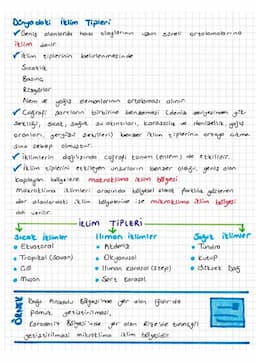 Dünyadaki İklim Tipleri
✓ Geniş alanlarda hava olaylarının uzun süreli ortalamalarına
iklim denir.
✓ İklim tiplerinin belirlenmesinde
Sıcaklık
Basınç
Rüzgarlar
Nem ve yağış elemanlarının ortalaması alınır.
✓ Coğrafi şartların birbirine benzemesi (deniz seviyesinden yük-
sekliği, sıcak, soğuk su akıntıları, karasallık ve denizellik, yağış
oranları, yeryüzü şekilleri) benzer iklim tiplerinin ortaya çıkma-
sına sebep olmuştur.
✓ İklimlerin dağılışında coğrafi konum (enlem) de etkilidir.
✓ İklim tiplerini etkileyen unsurların benzer olduğu, geniş alan
kaplayan bölgelere makroklima iklim bölgesi
Makroklima iklimleri arasında bölgesel olarak farklılık gösteren
dar alanlardaki iklim bölgelerine ise mikroklima iklim bölgesi
adı verilir.
İKLİM TİPLERİ
Sıcak İklimler
• Ekvatoral
• Tropikal (Savan)
• Çöl
• Muson
Ilıman İklimler
• Akdeniz
• Okyanusal
• Ilıman karasal (step)
• Sert karasal
Soğuk İklimler
• Tundra
• Kutup
• Yüksek Dağ
ÖRNEK
Doğu Anadolu Bölgesi'nde yer alan Iğdır'da
pamuk yetiştirilmesi,
Karadeniz Bölgesi'nde yer alan Rize'de turunçgil
yetiştirilmesi mikroklima iklim bölgesidir.